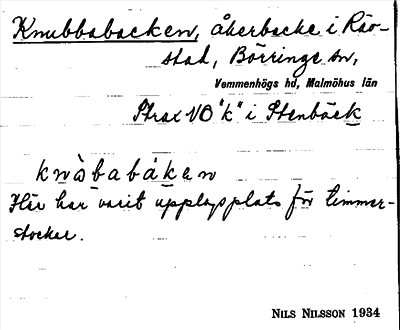 Knubbabacken, åkerbacke i Räv-
stad, Börringe sn,
Vemmenhögs hd, Malmöhus län
Strax VO "k" i Stenbäck
knòbabákan
Här har varit upplagsplats för timmer-
stockar.
NILS NILSSON 1934